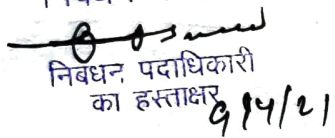 निबंधन पदाधिकारी
का हस्ताक्षर
9/4/21